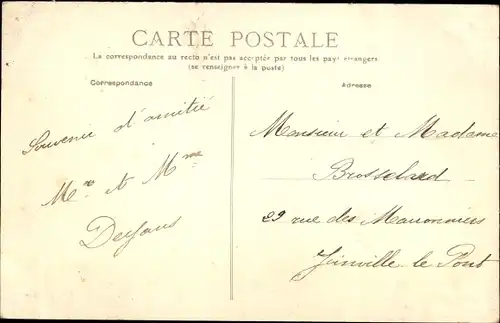 CARTE POSTALE
La correspondance au recto n'est pas acceptée par tous les pays étrangers
(se renseigner à la poste)
Correspondance
Souvenir d'amitié
Mr et Mme
Adresse
Monsieur et Madame
Brosselard
29 rue des Marronniers
Joinville le Pont